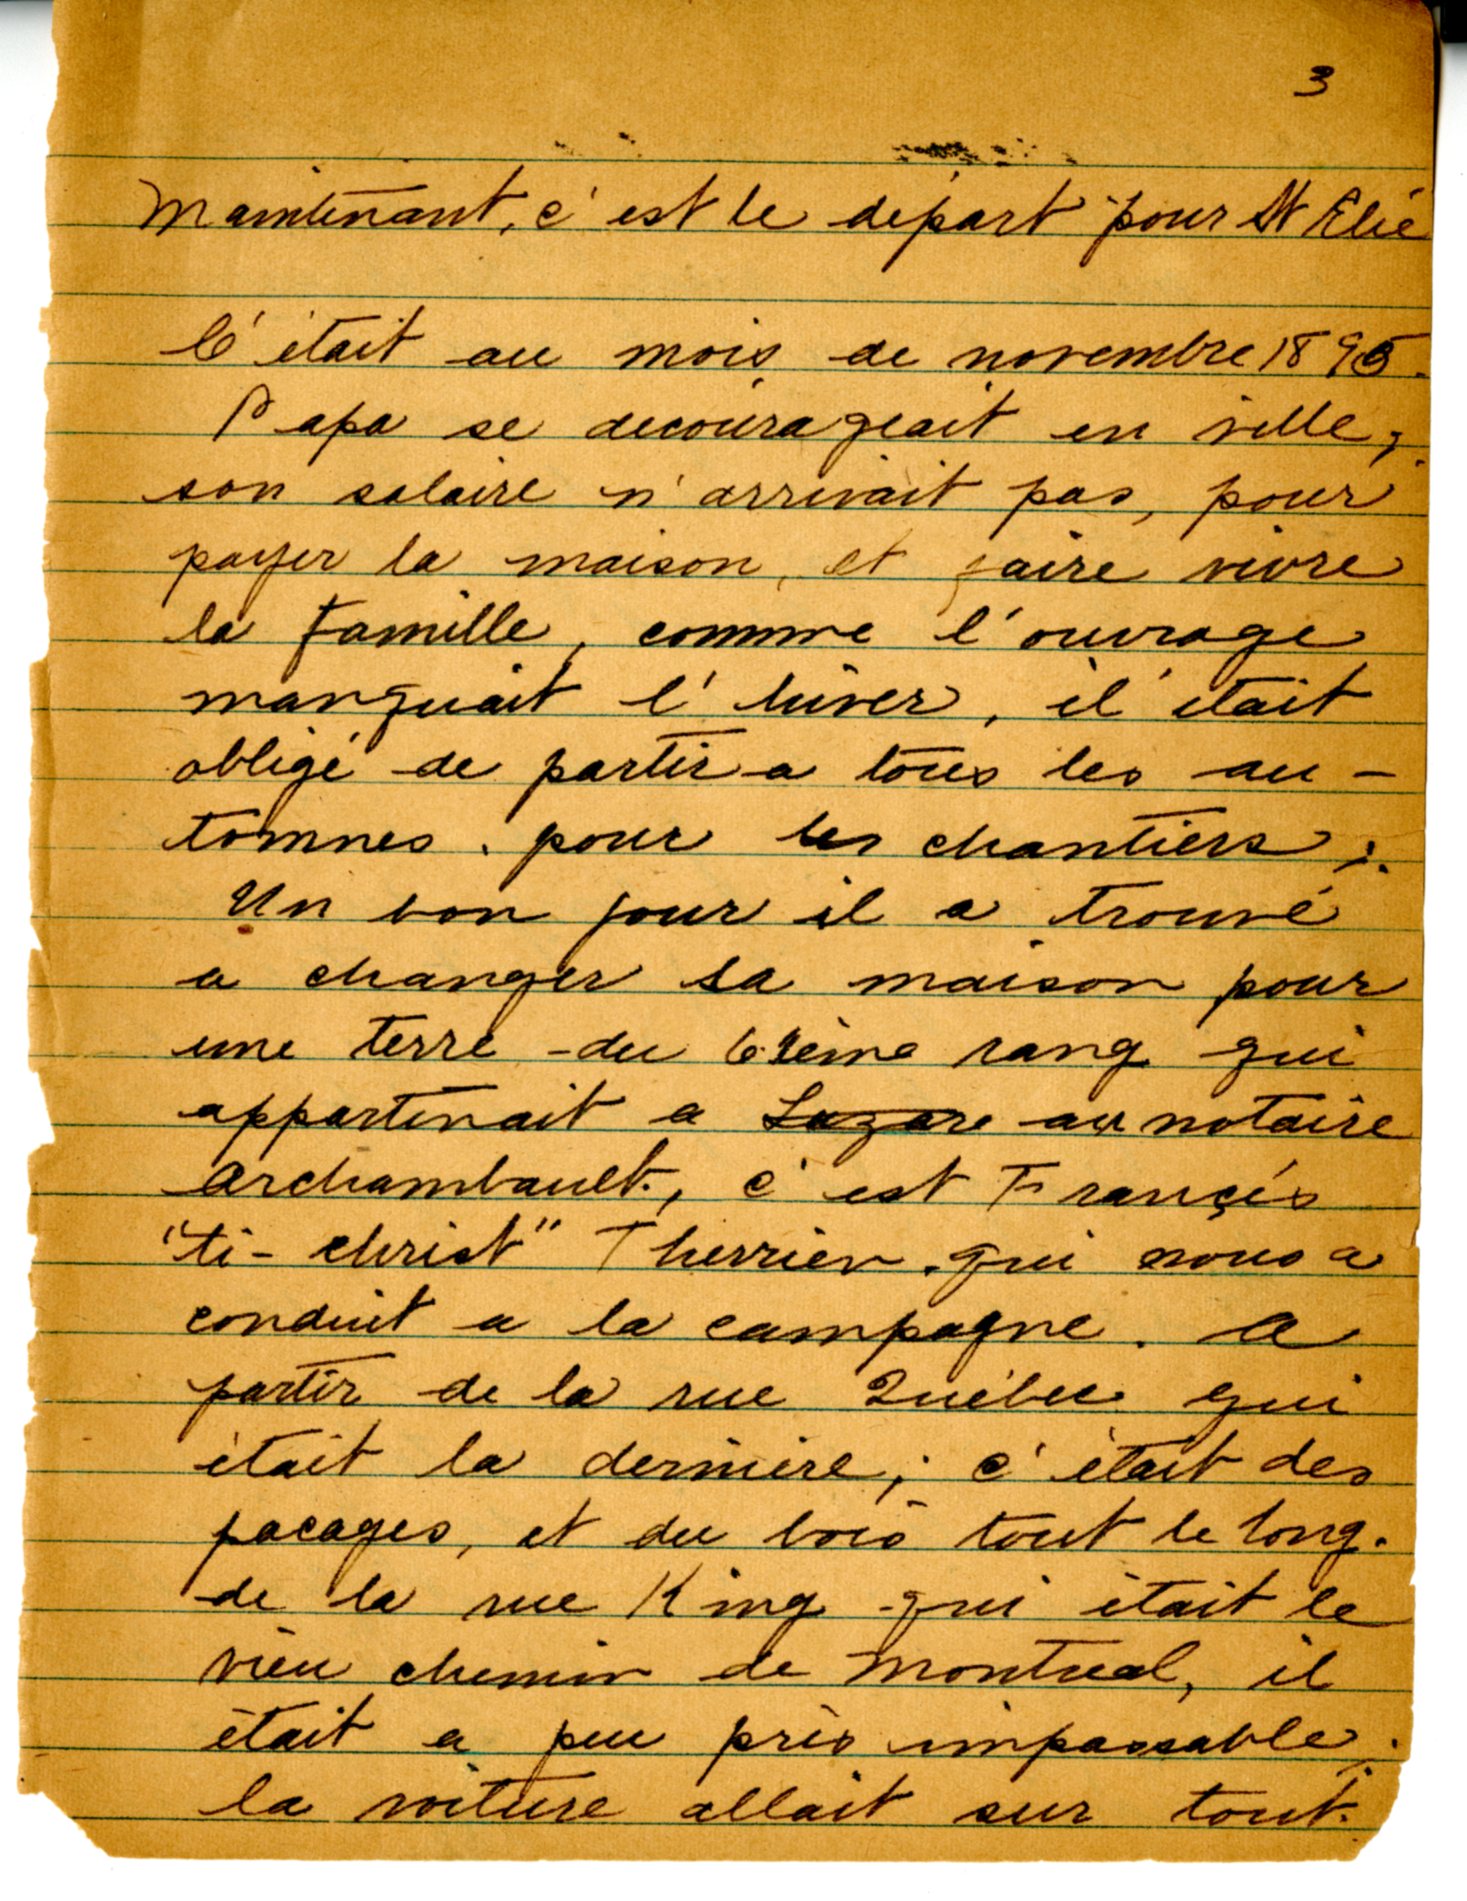 3
Maintenant, c'est le départ pour St Elie
C'était au mois de novembre 1895.
Papa se decourageait en ville,
son salaire n'arrivait pas, pour
payer la maison, et faire vivre
la famille, comme l'ouvrage
manquait l'hiver, il était
obligé de partir a tous les au-
tomnes. pour les chantiers;.
Un bon jour il a trouvé
a changer sa maison pour
une terre du 6ième rang qui
appartenait a Lazare au notaire
Archambault, c'est Françis
"ti-christ" Therrien. qui nous a
conduit a la campagne. A
partir de la rue Québec qui
était la dernière; c'était des
pacages, et du bois tout le long.
de la rue King qui était le
vieu chemin de Montreal, il
était a peu près impassable;
la voiture allait sur tout.